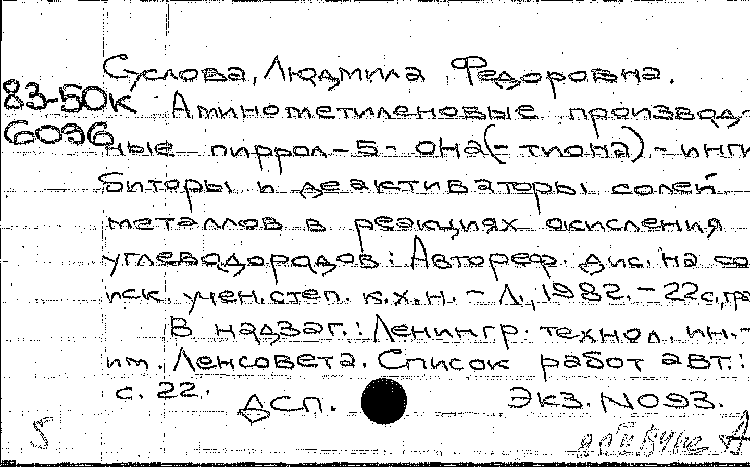 Суслова, Людмила Федоровна.
83-50к Аминометиленовые производ-
6036 ные пиррол-5-она(-тиона)-инги
биторы и деактиваторы солей
металлов в реакциях окисления
углеводородов: Автореф. дис. на со
иск. учен. степ. к.х.н. - Л., 1982. - 22с., гра
В надзаг.: Ленингр. технол. ин.-
им. Ленсовета. Список работ авт.:
с. 22.
ДСП. Экз. N093.
5